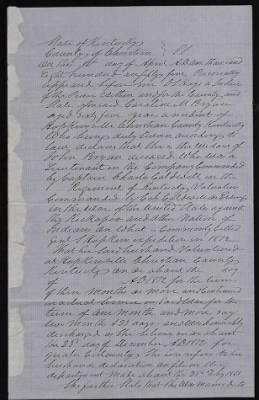 State of Kentucky
County of Christian } SS
On this day of April A.D. one thousand
Eight hundred and fifty five Personally
appeared before me a Justice
of the Peace within and for the County and
State aforesaid Caroline M. Bryan
aged sixty four years a resident of
Hopkinsville Christian County Kentucky
Who being duly Sworn according to
Law, declares that she is the widow of
John Bryan deceased Who was a
Lieutenant in the Company Commanded
by Captain Caldwell in the
Regiment of Kentucky Volunteers
Commanded by Col.
in the War of the United States against
the Kickapoo and other Nation of
Indians in What is Commonly Called
Genl S Hopkins expedition in 1812.
That her said Husband Volunteered
at Hopkinsville Christian County
Kentucky on or about the day
of AD 1812 for the term
of three Months or more and Continued
in actual Service in said War for the
term of one Month and more say
two Months & 23 days and was honorably
discharged at the
the 23d day of December AD 1812
husbands declaration on file in the
department Made about the 1851
She further States that She was Married to